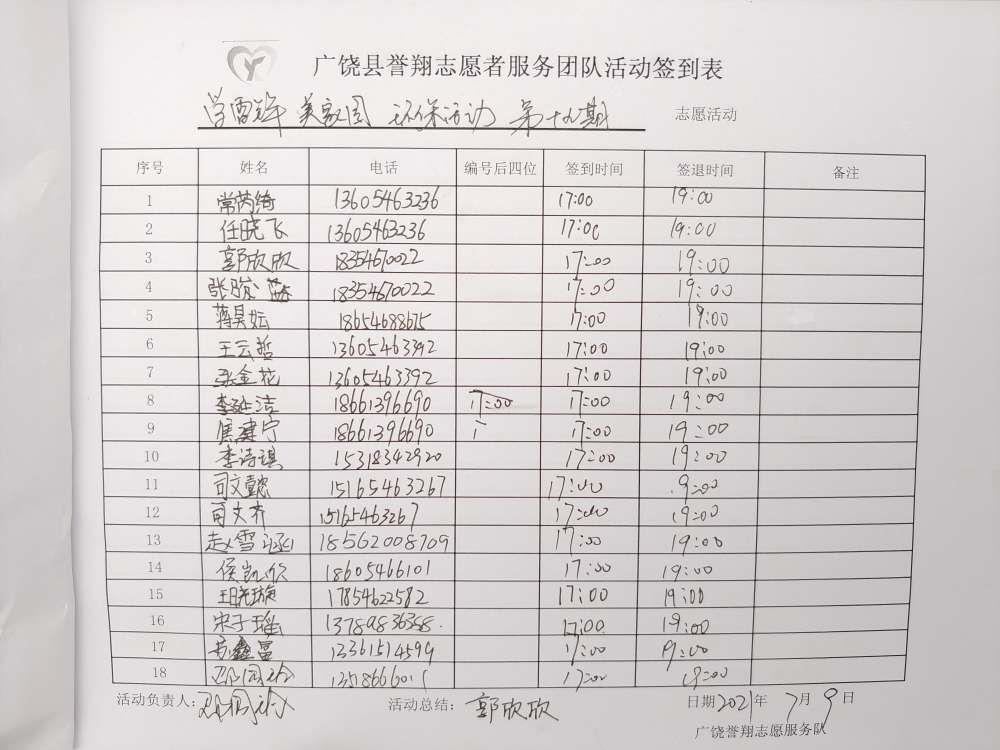 广饶县誉翔志愿者服务团队活动签到表
学雷锋 美家园 环保活动 第十九期 志愿活动
序号 姓名 电话 编号后四位 签到时间 签退时间 备注
1 常芮绮 13605463236 17:00 19:00
2 任晓飞 13605463236 17:00 19:00
3 郭欣欣 18354670022 17:00 19:00
4 18354670022 17:00 19:00
5 蒋昊妘 18654688675 17:00 19:00
6 王云哲 13605463392 17:00 19:00
7 张金花 13605463392 17:00 19:00
8 李延洁 18661396690 17:00 17:00 19:00
9 18661396690 17:00 19:00
10 李诗琪 15318342920 17:00 19:00
11 司文懿 15165463267 17:00 19:00
12 司文齐 15165463267 17:00 19:00
13 赵雪涵 18562008709 17:00 19:00
14 侯凯欣 18605466101 17:00 19:00
15 王晓璇 17854622582 17:00 19:00
16 宋子瑶 17:00 19:00
17 13361514599 17:00 19:00
18 17:00 19:00
活动负责人: 活动总结: 郭欣欣 日期 2021年 7月 9日
广饶誉翔志愿服务队